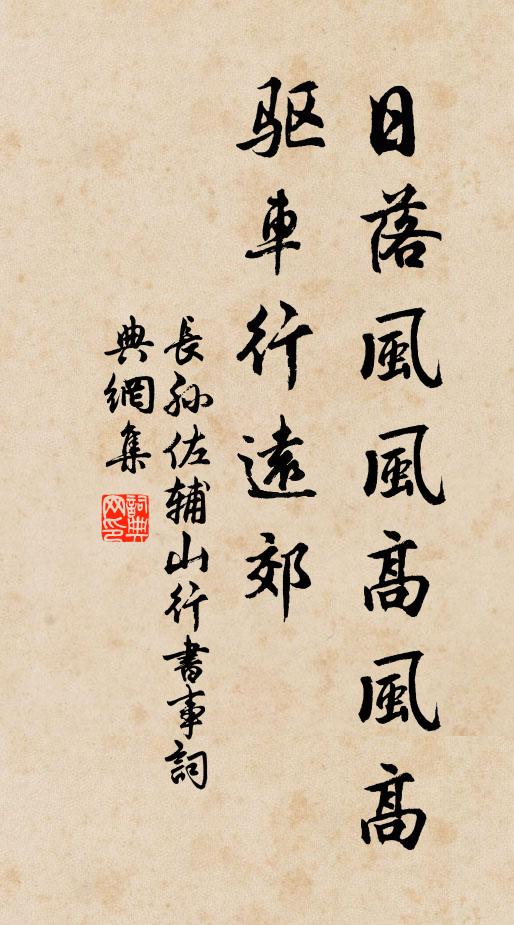 日落風風高風高
驱車行遠郊
長孙佐辅山行書事詞
典網集
詞典网印